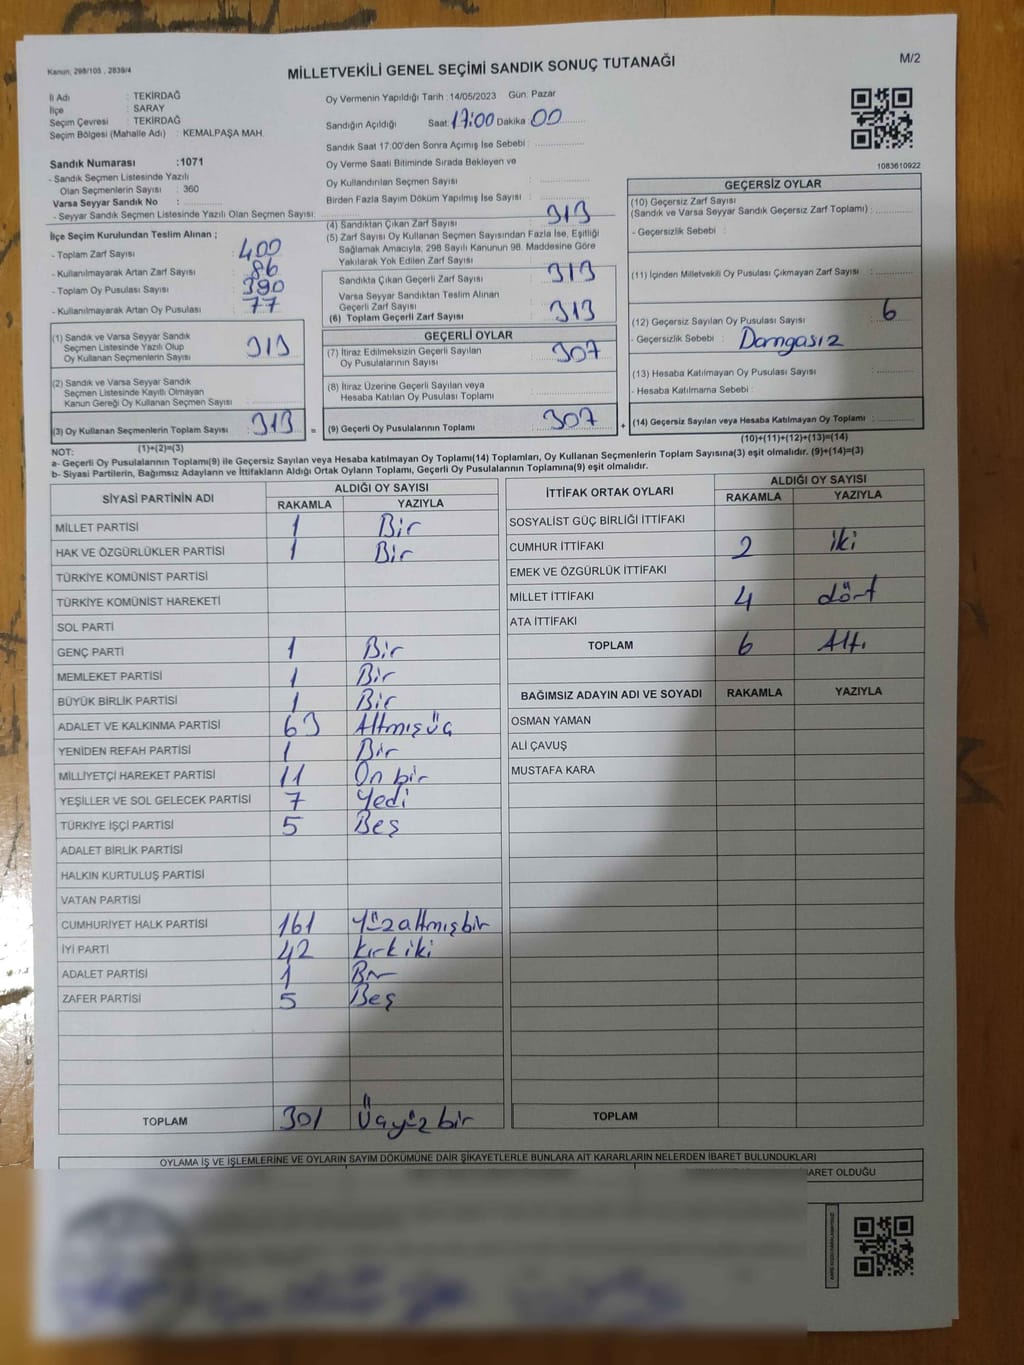 Kanun, 298/105 , 2839/4
MİLLETVEKİLİ GENEL SEÇİMİ SANDIK SONUÇ TUTANAĞI
M/2
İl Adı : TEKİRDAĞ
İlçe : SARAY
Seçim Çevresi : TEKİRDAĞ
Seçim Bölgesi (Mahalle Adı) : KEMALPAŞA MAH.
Sandık Numarası :1071
- Sandık Seçmen Listesinde Yazılı
Olan Seçmenlerin Sayısı : 360
Varsa Seyyar Sandık No :
- Seyyar Sandık Seçmen Listesinde Yazılı Olan Seçmen Sayısı:
Oy Vermenin Yapıldığı Tarih :14/05/2023 Gün: Pazar
Sandığın Açıldığı Saat: 17:00 Dakika 00
Sandık Saat 17:00'den Sonra Açımış İse Sebebi :
Oy Verme Saati Bitiminde Sırada Bekleyen ve
Oy Kullandırılan Seçmen Sayısı :
Birden Fazla Sayım Döküm Yapılmış İse Sayısı :
1083610922
İlçe Seçim Kurulundan Teslim Alınan ;
- Toplam Zarf Sayısı : 400
- Kullanılmayarak Artan Zarf Sayısı : 86
- Toplam Oy Pusulası Sayısı : 390
- Kullanılmayarak Artan Oy Pusulası : 77
(1) Sandık ve Varsa Seyyar Sandık
Seçmen Listesinde Yazılı Olup
Oy Kullanan Seçmenlerin Sayısı : 313
(2) Sandık ve Varsa Seyyar Sandık
Seçmen Listesinde Kayıtlı Olmayan
Kanun Gereği Oy Kullanan Seçmen Sayısı :
(3) Oy Kullanan Seçmenlerin Toplam Sayısı : 313
(4) Sandıktan Çıkan Zarf Sayısı : 313
(5) Zarf Sayısı Oy Kullanan Seçmen Sayısından Fazla İse, Eşitliği
Sağlamak Amacıyla, 298 Sayılı Kanunun 98. Maddesine Göre
Yakılarak Yok Edilen Zarf Sayısı :
Sandıkta Çıkan Geçerli Zarf Sayısı : 313
Varsa Seyyar Sandıktan Teslim Alınan
Geçerli Zarf Sayısı :
(6) Toplam Geçerli Zarf Sayısı : 313
GEÇERLİ OYLAR
(7) İtiraz Edilmeksizin Geçerli Sayılan
Oy Pusulalarının Sayısı : 307
(8) İtiraz Üzerine Geçerli Sayılan veya
Hesaba Katılan Oy Pusulası Toplamı :
= (9) Geçerli Oy Pusulalarının Toplamı : 307
GEÇERSİZ OYLAR
(10) Geçersiz Zarf Sayısı
(Sandık ve Varsa Seyyar Sandık Geçersiz Zarf Toplamı) :
- Geçersizlik Sebebi :
(11) İçinden Milletvekili Oy Pusulası Çıkmayan Zarf Sayısı :
(12) Geçersiz Sayılan Oy Pusulası Sayısı : 6
- Geçersizlik Sebebi : Damgasız
(13) Hesaba Katılmayan Oy Pusulası Sayısı :
- Hesaba Katılmama Sebebi :
+ (14) Geçersiz Sayılan veya Hesaba Katılmayan Oy Toplamı :
NOT: (1)+(2)=(3) (10)+(11)+(12)+(13)=(14)
a- Geçerli Oy Pusulalarının Toplamı(9) ile Geçersiz Sayılan veya Hesaba katılmayan Oy Toplamı(14) Toplamları, Oy Kullanan Seçmenlerin Toplam Sayısına(3) eşit olmalıdır. (9)+(14)=(3)
b- Siyasi Partilerin, Bağımsız Adayların ve İttifakların Aldığı Ortak Oyların Toplamı, Geçerli Oy Pusulalarının Toplamına(9) eşit olmalıdır.
SİYASİ PARTİNİN ADI ALDIĞI OY SAYISI
RAKAMLA YAZIYLA
MİLLET PARTİSİ 1 Bir
HAK VE ÖZGÜRLÜKLER PARTİSİ 1 Bir
TÜRKİYE KOMÜNİST PARTİSİ
TÜRKİYE KOMÜNİST HAREKETİ
SOL PARTİ
GENÇ PARTİ 1 Bir
MEMLEKET PARTİSİ 1 Bir
BÜYÜK BİRLİK PARTİSİ 1 Bir
ADALET VE KALKINMA PARTİSİ 63 Altmışüç
YENİDEN REFAH PARTİSİ 1 Bir
MİLLİYETÇİ HAREKET PARTİSİ 11 On bir
YEŞİLLER VE SOL GELECEK PARTİSİ 7 Yedi
TÜRKİYE İŞÇİ PARTİSİ 5 Beş
ADALET BİRLİK PARTİSİ
HALKIN KURTULUŞ PARTİSİ
VATAN PARTİSİ
CUMHURİYET HALK PARTİSİ 161 Yüzaltmışbir
İYİ PARTİ 42 Kırkiki
ADALET PARTİSİ 1 Bir
ZAFER PARTİSİ 5 Beş
TOPLAM 301 Üçyüzbir
İTTİFAK ORTAK OYLARI ALDIĞI OY SAYISI
RAKAMLA YAZIYLA
SOSYALİST GÜÇ BİRLİĞİ İTTİFAKI
CUMHUR İTTİFAKI 2 iki
EMEK VE ÖZGÜRLÜK İTTİFAKI
MİLLET İTTİFAKI 4 dört
ATA İTTİFAKI
TOPLAM 6 Altı
BAĞIMSIZ ADAYIN ADI VE SOYADI RAKAMLA YAZIYLA
OSMAN YAMAN
ALİ ÇAVUŞ
MUSTAFA KARA
TOPLAM
OYLAMA İŞ VE İŞLEMLERİNE VE OYLARIN SAYIM DÖKÜMÜNE DAİR ŞİKAYETLERLE BUNLARA AİT KARARLARIN NELERDEN İBARET BULUNDUKLARI
BARET OLDUĞU